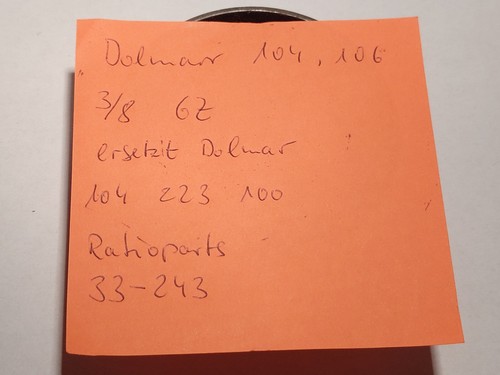 Dolmar 104, 106
3/8 6Z
ersetzt Dolmar
104 223 100
Ratioparts
33-243